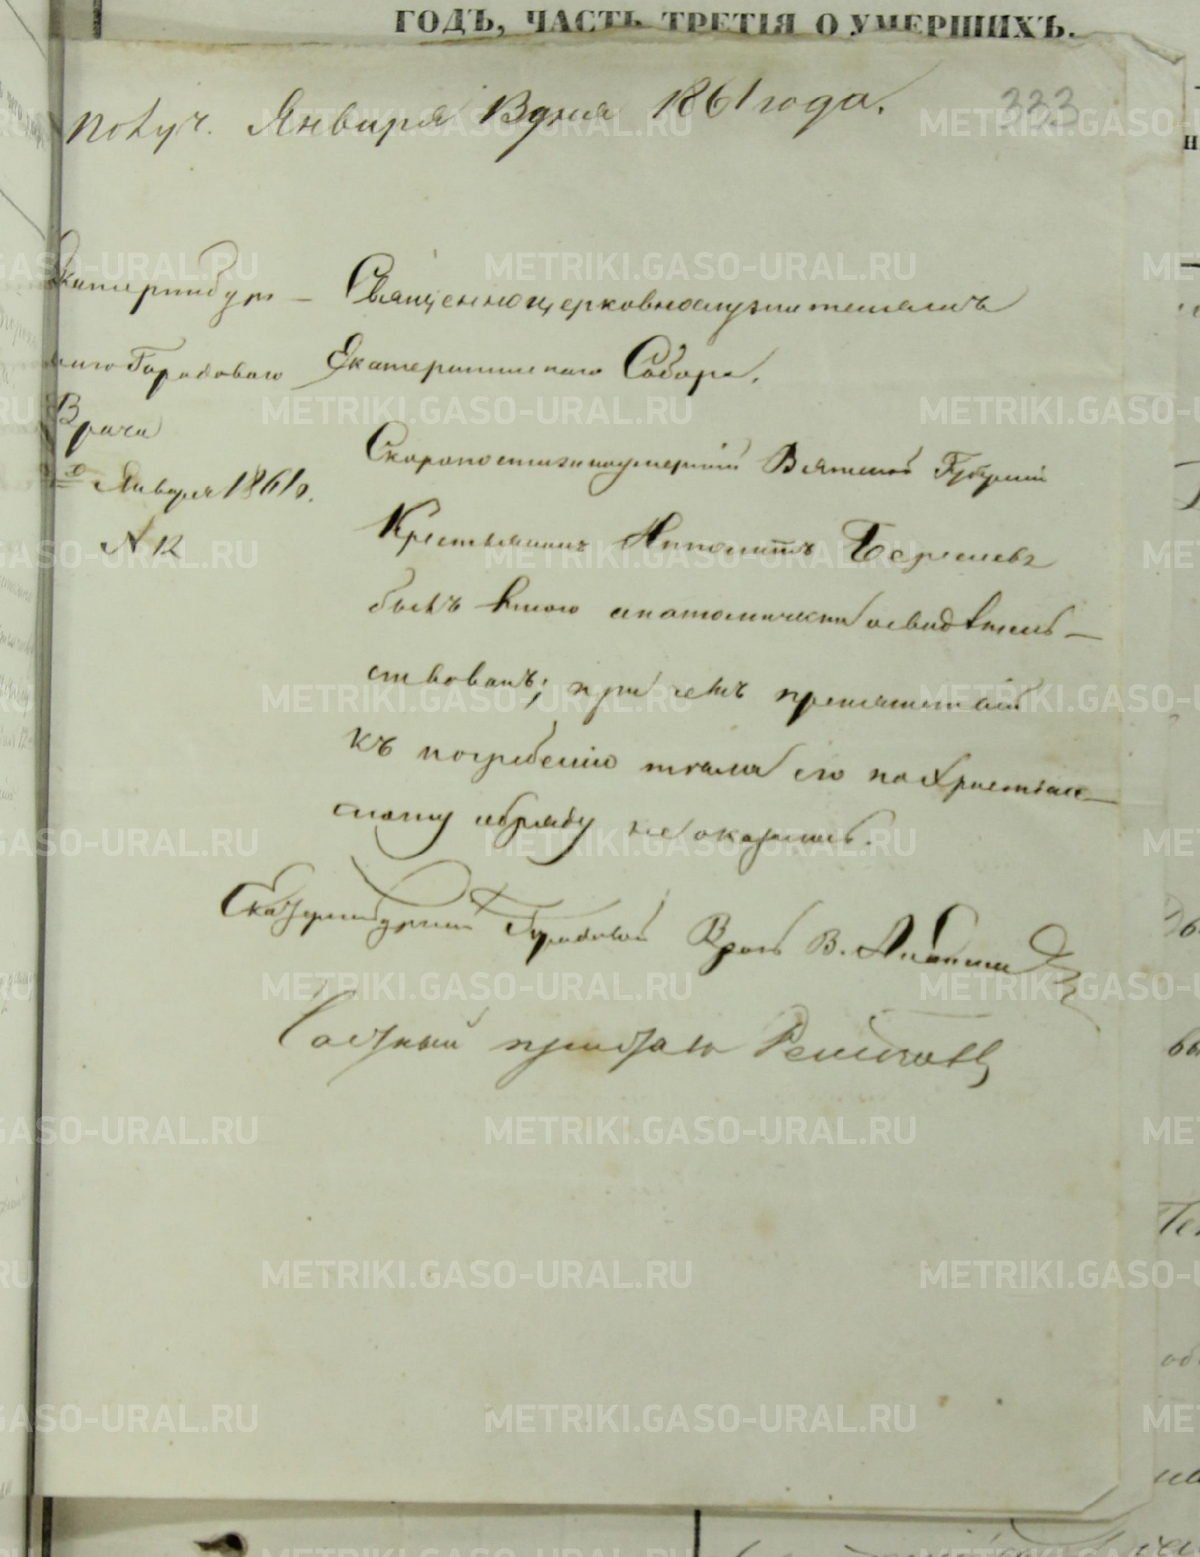 ГОДЪ, ЧАСТЬ ТРЕТІЯ О УМЕРШИХЪ.
333
Получ. Января 13 дня 1861 года.
Екатеринбург–
скаго Городоваго
Врача
Января 1861 г.
N 12
Священноцерковнослужителямъ
Екатерининскаго Собора.
Скоропостижноумершій Вятской Губерніи
Крестьянинъ Ипполитъ
былъ мною анатомически освидѣтель–
ствованъ; при чемъ препятствій
къ погребенію тѣла его по Христіан–
скому обряду не оказалось.
Екатеринбургскій Городовой Врачъ В.
Частный приставъ
METRIKI.GASO-URAL.RU